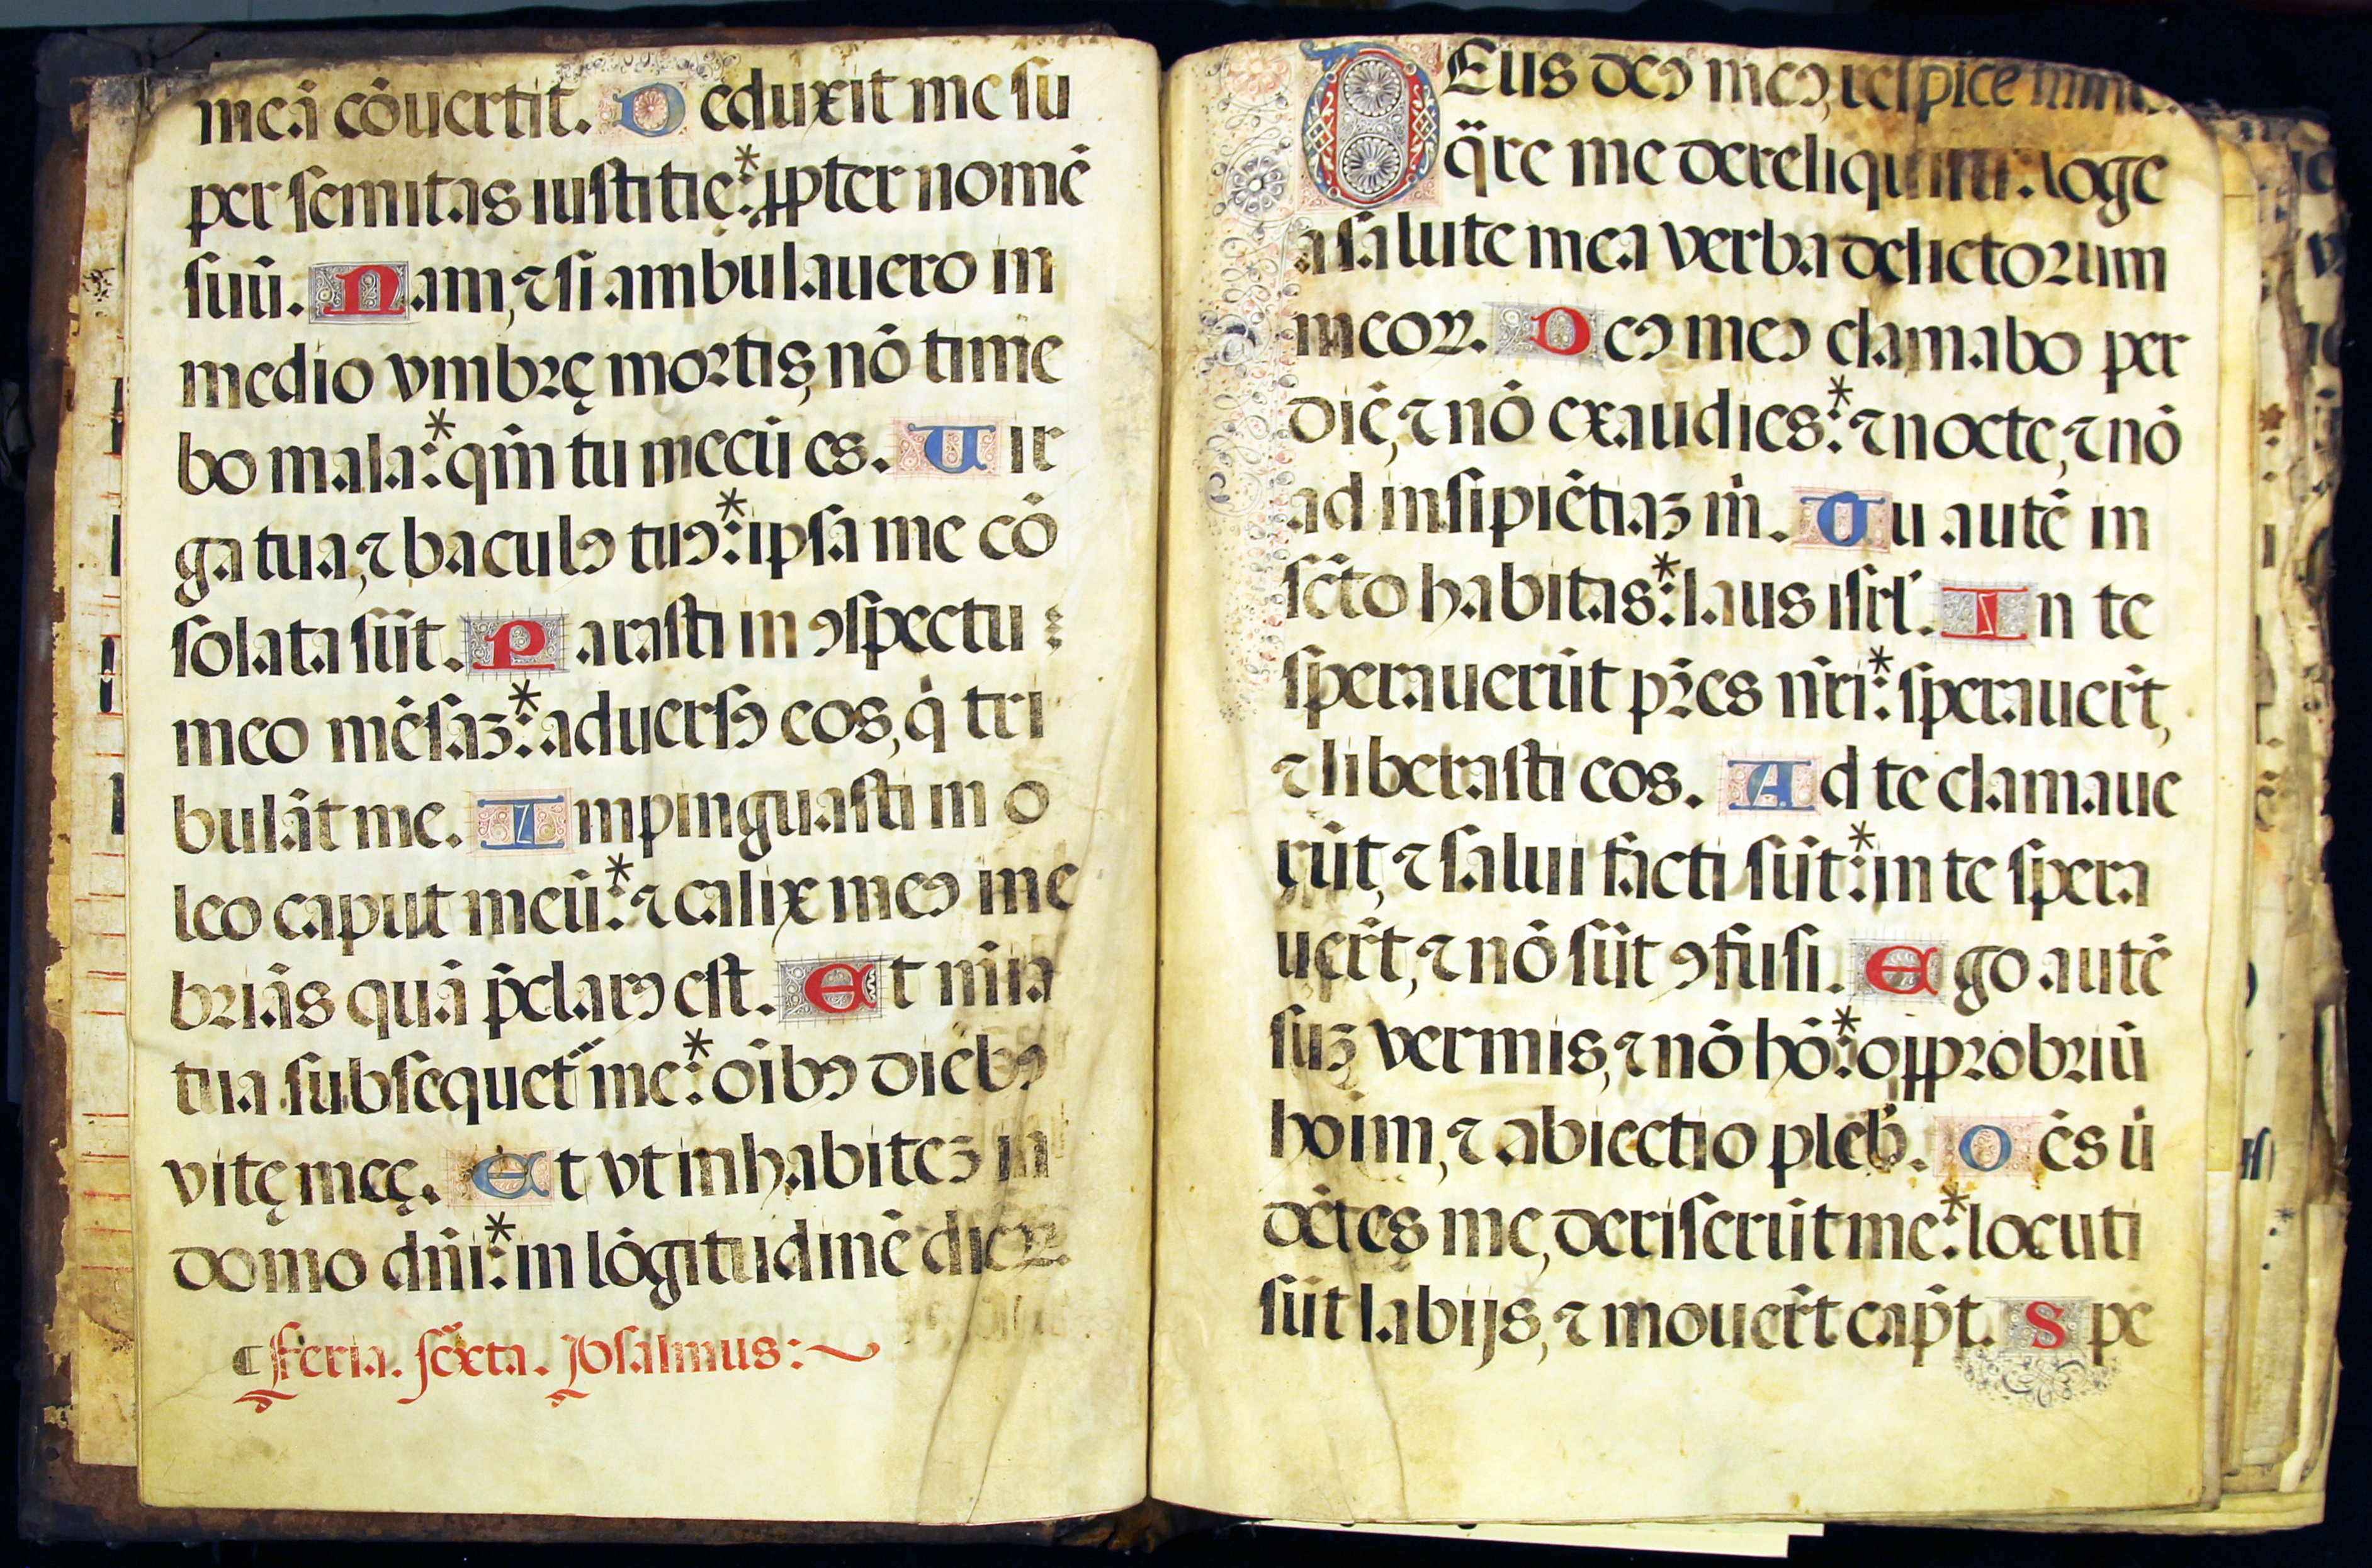 meā cōuertit. Deduxit me su
per semitas iustitię:* ꝓpter nomē
suū. Nam, ⁊ si ambulauero in
medio vmbrę mortis, nō time
bo mala:* qm̄ tu mecū es. Uir
ga tua, ⁊ baculꝰ tuꝰ:* ipsa me cō
solata sūt. Parasti in ꝯspectu :
meo mēsaꝫ:* aduersꝰ eos, q̇ tri
bulāt me. Impinguasti in o
leo caput meū:* ⁊ calix meꝰ ine
briās quā p̄clarꝰ est. Et mīa
tua subsequet᷑ me:* oībꝰ diebꝰ
vitę meę. Et vt inhabiteꝫ in
domo dn̄i:* in lōgitudinē dieꝝ.
¶ Feria. sexta. Psalmus:~
DEus deꝰ meꝰ, respice
q̄re me dereliquisti: loge
a salute mea verba delictorum
meoꝝ. Deꝰ meꝰ clamabo per
diē, ⁊ nō exaudies:* ⁊ nocte, ⁊ nō
ad insipiētiaꝫ m̄. Tu autē in
scto habitas:* laus isrl'. In te
sperauerūt pr̄es nr̄i:* sperauer̄t,
⁊ liberasti eos. Ad te clamaue
rūt, ⁊ salui facti sūt:* in te spera
uer̄t, ⁊ nō sūt ꝯfusi. Ego autē
suꝫ vermis, ⁊ nō hō:* oꝓprobriū
hoīm, ⁊ abiectio pleb̄. Oēs ui
dētes me, deriserūt me:* locuti
sūt labijs, ⁊ mouer̄t cap̄t. Spe